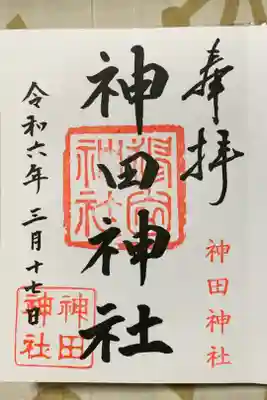 奉拝
神田神社
神田神社
令和六年 三月十七日
神田
神社